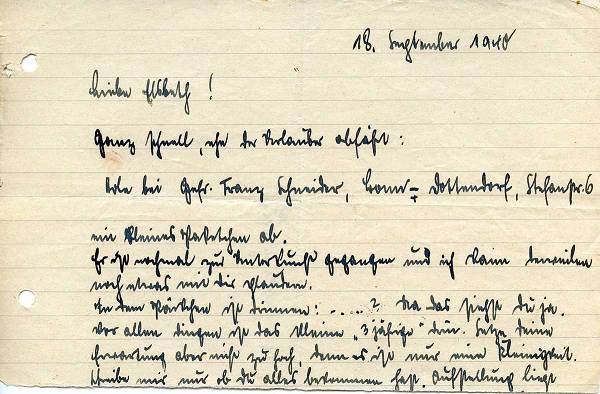 18. September 1940
Liebe Elsbeth!
Ganz schnell, ehe der Urlauber abfährt:
Hole bei Gefr. Franz Schneider, Bonn-Dottendorf, Stefanstr. 6
ein kleines Paketchen ab.
Er ist nochmal zur Unterkunft gegangen und ich kann derweilen
noch etwas mit dir plaudern.
In dem Päckchen ist drinnen: ..... ? Na das siehst du ja.
Vor allen dingen ist das kleine „3 jährige" drin. Setze deine
Erwartung aber nicht zu hoch, denn es ist nur eine Kleinigkeit.
Schreibe mir nur ob du alles bekommen hast. Aufstellung liegt